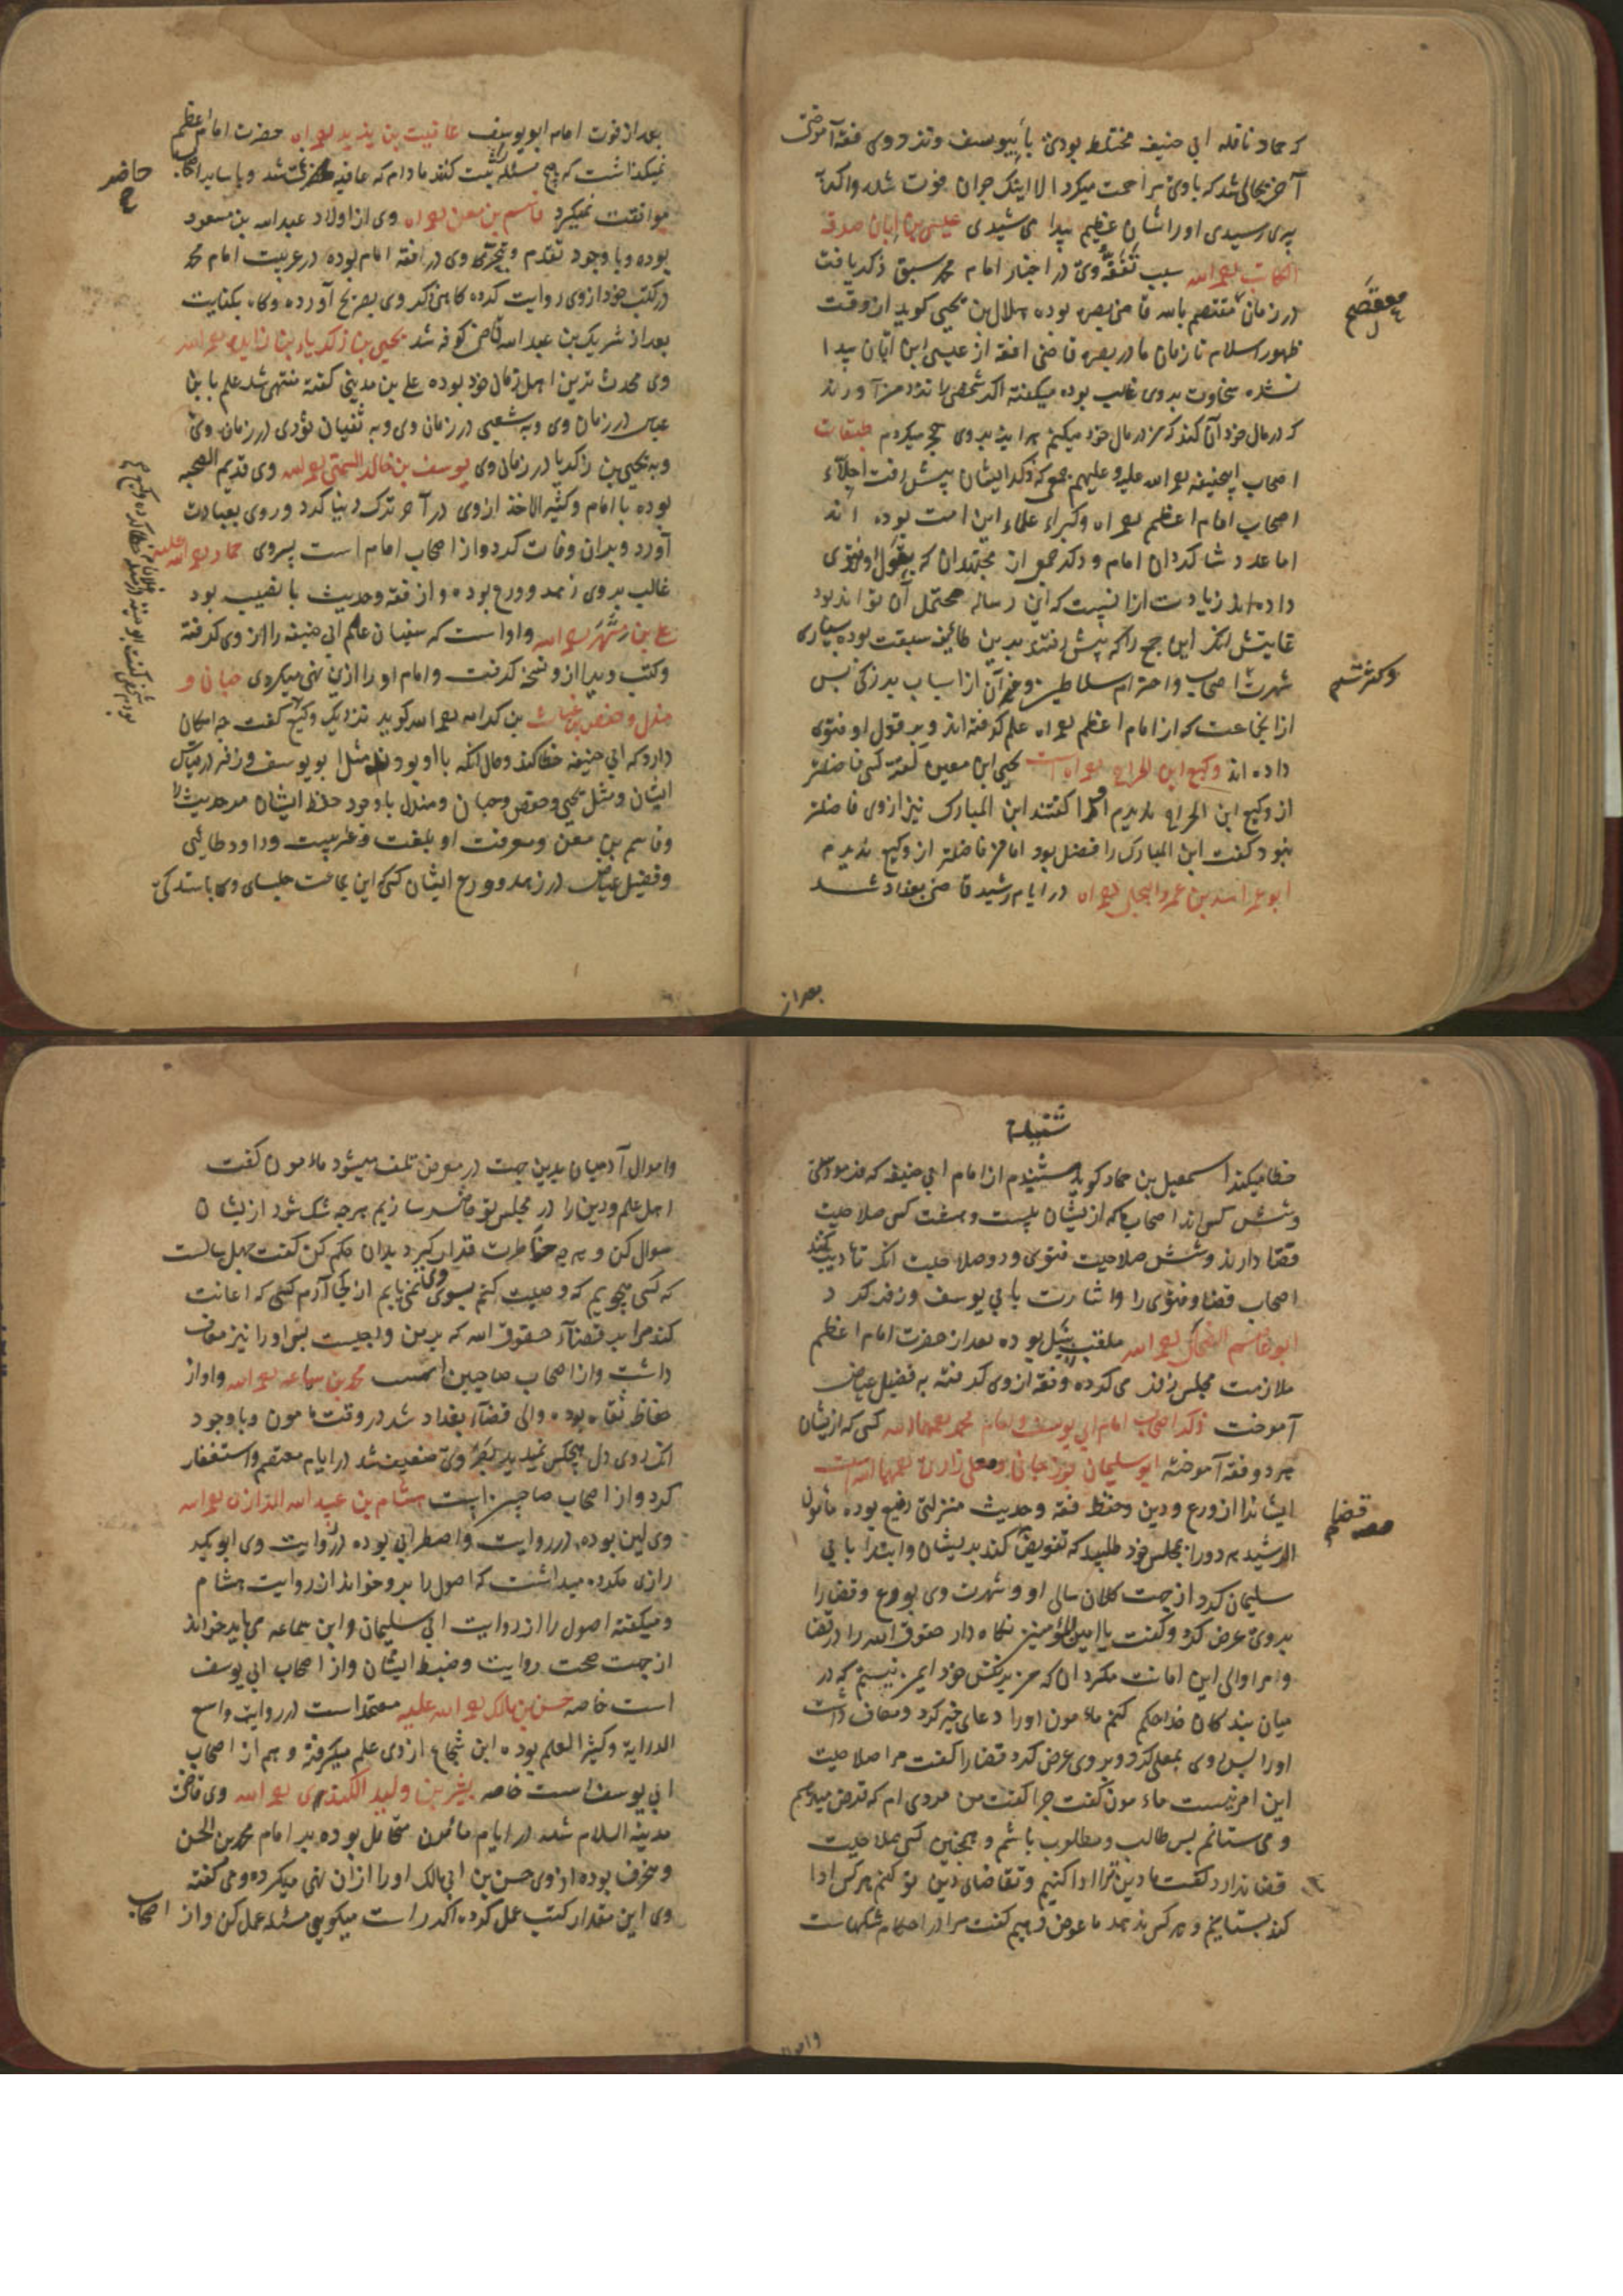 که حماد نافله ابی حنیفه مختلط بودی با بیوسف و نزد وی فقه آموختی
آخر بحالی شد که با وی مزاحمت میکرد الا اینک جوان فوت شد و اگر
پیری رسیدی او را شان عظیم پیدا می شیدی عیسی بن ابان صدقه
الکاتب رحمه الله سبب تفقه وی در اخبار امام محمد سبق ذکر یافت
در زمان معتصم بالله قاضی بصره بوده هلال بن یحیی کوید از وقت
ظهور اسلام تا زمان ما در بصره قاضی افقه از عیسی ابن ابان پیدا
نشده سخاوت بروی غالب بوده میکفته اکر شخصی را نزد من آورند
که در مال خود آن کند که من در مال خود میکنم هر اینه بروی حجر میکردم طبقات
اصحاب ابیحنیفه رحمه الله علیه و علیهم جمعی که ذکر ایشان پیش رفت اجلاء
اصحاب امام اعظم رحمه الله وکبراء علماء این امت بوده اند
اما عدد شاکردان امام و ذکر جمعی از مجتهدان که بقول او فتوی
داده اند زیادت از انیست که این رساله محتمل آن تواند بود
غایتش انکه این جمع را که پیش رفتند بدین طایفه سبقت بوده بسیاری
شهرت اصحاب و احترام سلاطین وغیر آن از اسباب بزرکی پس
از انجماعت که از امام اعظم رحمه الله علم کرفته اند و بر قول او فتوی
داده اند وکیع ابن الجراح رحمه الله است یحیی ابن معین کفته کسی فاضلتر
از وکیع ابن الجراح ندیدم او را کفتند ابن المبارک نیز از وی فاضلتر
نبود کفت ابن المبارک را فضل بود اما من فاضلتر از وکیع ندیدم
ابو عمر اسد بن عمرو البجلی رحمه الله در ایام رشید قاضی بغداد شد
معتصم
بعد از
بعد از فوت امام ابو یوسف عافیت بن یزید رحمه الله حضرت امام اعظم
نمیکذاشت که هیچ مسئله ثبت کنند مادام که عافیه حاضر نمی شد و با سایر اصحاب
موافقت نمیکرد قاسم بن معن رحمه الله وی از اولاد عبد الله بن مسعود
بوده و با وجود تقدم و تبحر وی در فقه امام بوده در عربیت امام محمد
در کتب خود از وی روایت کرده کاهی ذکر وی بصریح آورده و کاه بکنایت
بعد از شریک بن عبد الله قاضی کوفه شد یحیی بن زکریاء بن زایده رحمه الله
وی محدث ترین اهل زمان خود بوده علی بن مدینی کفته منتهی شد علم بابن
عباس در زمان وی و به شعبی در زمان وی و به سفیان ثوری در زمان وی
و به یحیی بن زکریا در زمان وی یوسف بن خالد السمتی رحمه الله وی قدیم الصحبه
بوده با امام و کثیر الاخذ از وی در آخر ترک دنیا کرد و روی بعبادت
آورد و بران وفات کرد و از اصحاب امام است پسر وی حماد رحمه الله علیه
غالب بروی زهد و ورع بوده و از فقه و حدیث با نصیب بود
علی بن مسهر رحمه الله و او است که سفیان علم ابی حنیفه را از وی کرفته
و کتب ویرا از و نسخه کرفت و امام او را ازین نهی میکردی حبان و
مندل و حفص بن غیاث بن کرامه رحمه الله کوید نزدیک وکیع کفت چه امکان
دارد که ابی حنیفه خطا کند و حال آنکه با او بودند مثل ابو یوسف و زفر در قیاس
ایشان و مثل یحیی و حفص و حبان و مندل با وجود حفظ ایشان مر حدیث را
و قاسم بن معن و معرفت او بلغت و عربیت و داود طائی
و فضیل عیاض در زهد و ورع ایشان کسی که این جماعت جلسای وی باشند کی
حاضر
شنیده
خطا میکند اسمعیل بن حماد کوید شنیدم از امام ابی حنیفه که فرمود سی
و شش کس اند اصحاب ما که از یشان بیست و هشت کس صلاحیت
قضا دارند و شش صلاحیت فتوی و دو صلاحیت آنکه تادیب کنند
اصحاب قضا و فتوی را و اشارت بابی یوسف و زفر کرد
ابو عاصم الضحاک رحمه الله ملقب بنبیل بوده بعد از حضرت امام اعظم
ملازمت مجلس زفر می کرده و فقه از وی کرفته به فضیل عیاض
آموخت ذکر اصحاب امام ابی یوسف و امام محمد رحمهما الله کسی که از یشان
هر دو فقه آموخته ابو سلیمان جوزجانی و معلی رازی رحمهما الله است
ایشانرا از ورع و دین و حفظ فقه و حدیث منزلتی رفیع بوده مامون
الرشید هر دو را بمجلس خود طلبید که تفویض قضا کند بریشان و ابتدا بابی
سلیمان کرد از جهت کلان سالی او و شهرت وی بورع و قضا را
بروی عرض کرد و کفت یا امیر المؤمنین نکاه دار حقوق الله را در قضا
و مرا والی این امانت مکردان که من بر نفس خود ایمن نیستم که در
میان بندکان خدا حکم کنم ماء مون او را دعای خیر کرد و معاف داشت
او را پس روی بمعلی کرد و بروی عرض کرد قضا را کفت مرا صلاحیت
این امر نیست ماء مون کفت چرا کفت من مردی ام که قرض میدهم
و می ستانم پس طالب و مطلوب باشم و همچنین کسی صلاحیت
قضا ندارد کفت ما دین ترا ادا کنیم و تقاضای دین تو کنم هر کس ادا
کند بستانیم و هر کس ندهد ما عوض دهیم کفت مرا در احکام شکهاست
قضا
واموال
واموال آدمیان بدین جهت در معرض تلف میشود ماء مون کفت
اهل علم و دین را در مجلس تو حاضر سازیم هر چه شک شود از یشان
سوال کن و بهر چه خاطرت قرار کیرد بدان حکم کن کفت چهل سالست
که کسی میجویم که وصیت کنم بسوی وی نمی یابم از کجا آرم کسی که اعانت
کند مرا بر قضاء حقوق الله که بر من واجبست پس او را نیز معاف
داشت و از اصحاب صاحبین است محمد بن سماعه رحمه الله و او از
حفاظ ثقاه بوده والی قضاء بغداد شد در وقت مامون و با وجود
وی ضعیف شد در ایام معتصم و استغفار
کرد و از اصحاب صاحبین است هشام بن عبد الله الرازی رحمه الله
وی لین بوده در روایت و اضطرابی بوده در روایت وی ابوبکر
رازی مکروه میداشت که اصول را برو خوانند از روایت هشام
و میکفته اصول را از روایت ابی سلیمان و ابن سماعه می باید خواند
از جهت صحت روایت و ضبط ایشان و از اصحاب ابی یوسف
است خاصه حسن بن مالک رحمه الله علیه معتمد است در روایت واسع
الدرایة و کثیر العلم بوده ابن شجاع از وی علم میکرفته و هم از اصحاب
ابی یوسف است خاصه بشر بن ولید الکندی رحمه الله وی قاضی
مدینة السلام شده در ایام مامون متحامل بوده بر امام محمد بن الحسن
و منحرف بوده از وی حسن بن ابی مالک او را از آن نهی میکرده و می کفته
وی این مقدار کتب عمل کرده اکر راست میکویی مسئله عمل کن و از اصحاب